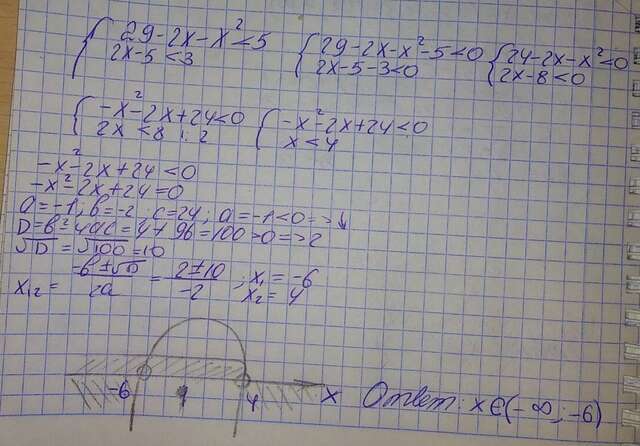 {29-2x-x²<5 {29-2x-x²-5<0 {24-2x-x²<0
2x-5<3 2x-5-3<0 2x-8<0
{-x²-2x+24<0 {-x²-2x+24<0
2x<8 :2 x<4
-x²-2x+24<0
-x²-2x+24=0
a=-1; b=-2, c=24; a=-1<0=>↓
D=b²-4ac=4+96=100>0=>2
√D=√100=10
x₁,₂=(-b±√D)/2a=(2±10)/-2; x₁=-6
x₂=4
-6 4 x Ответ: x∈(-∞;-6)